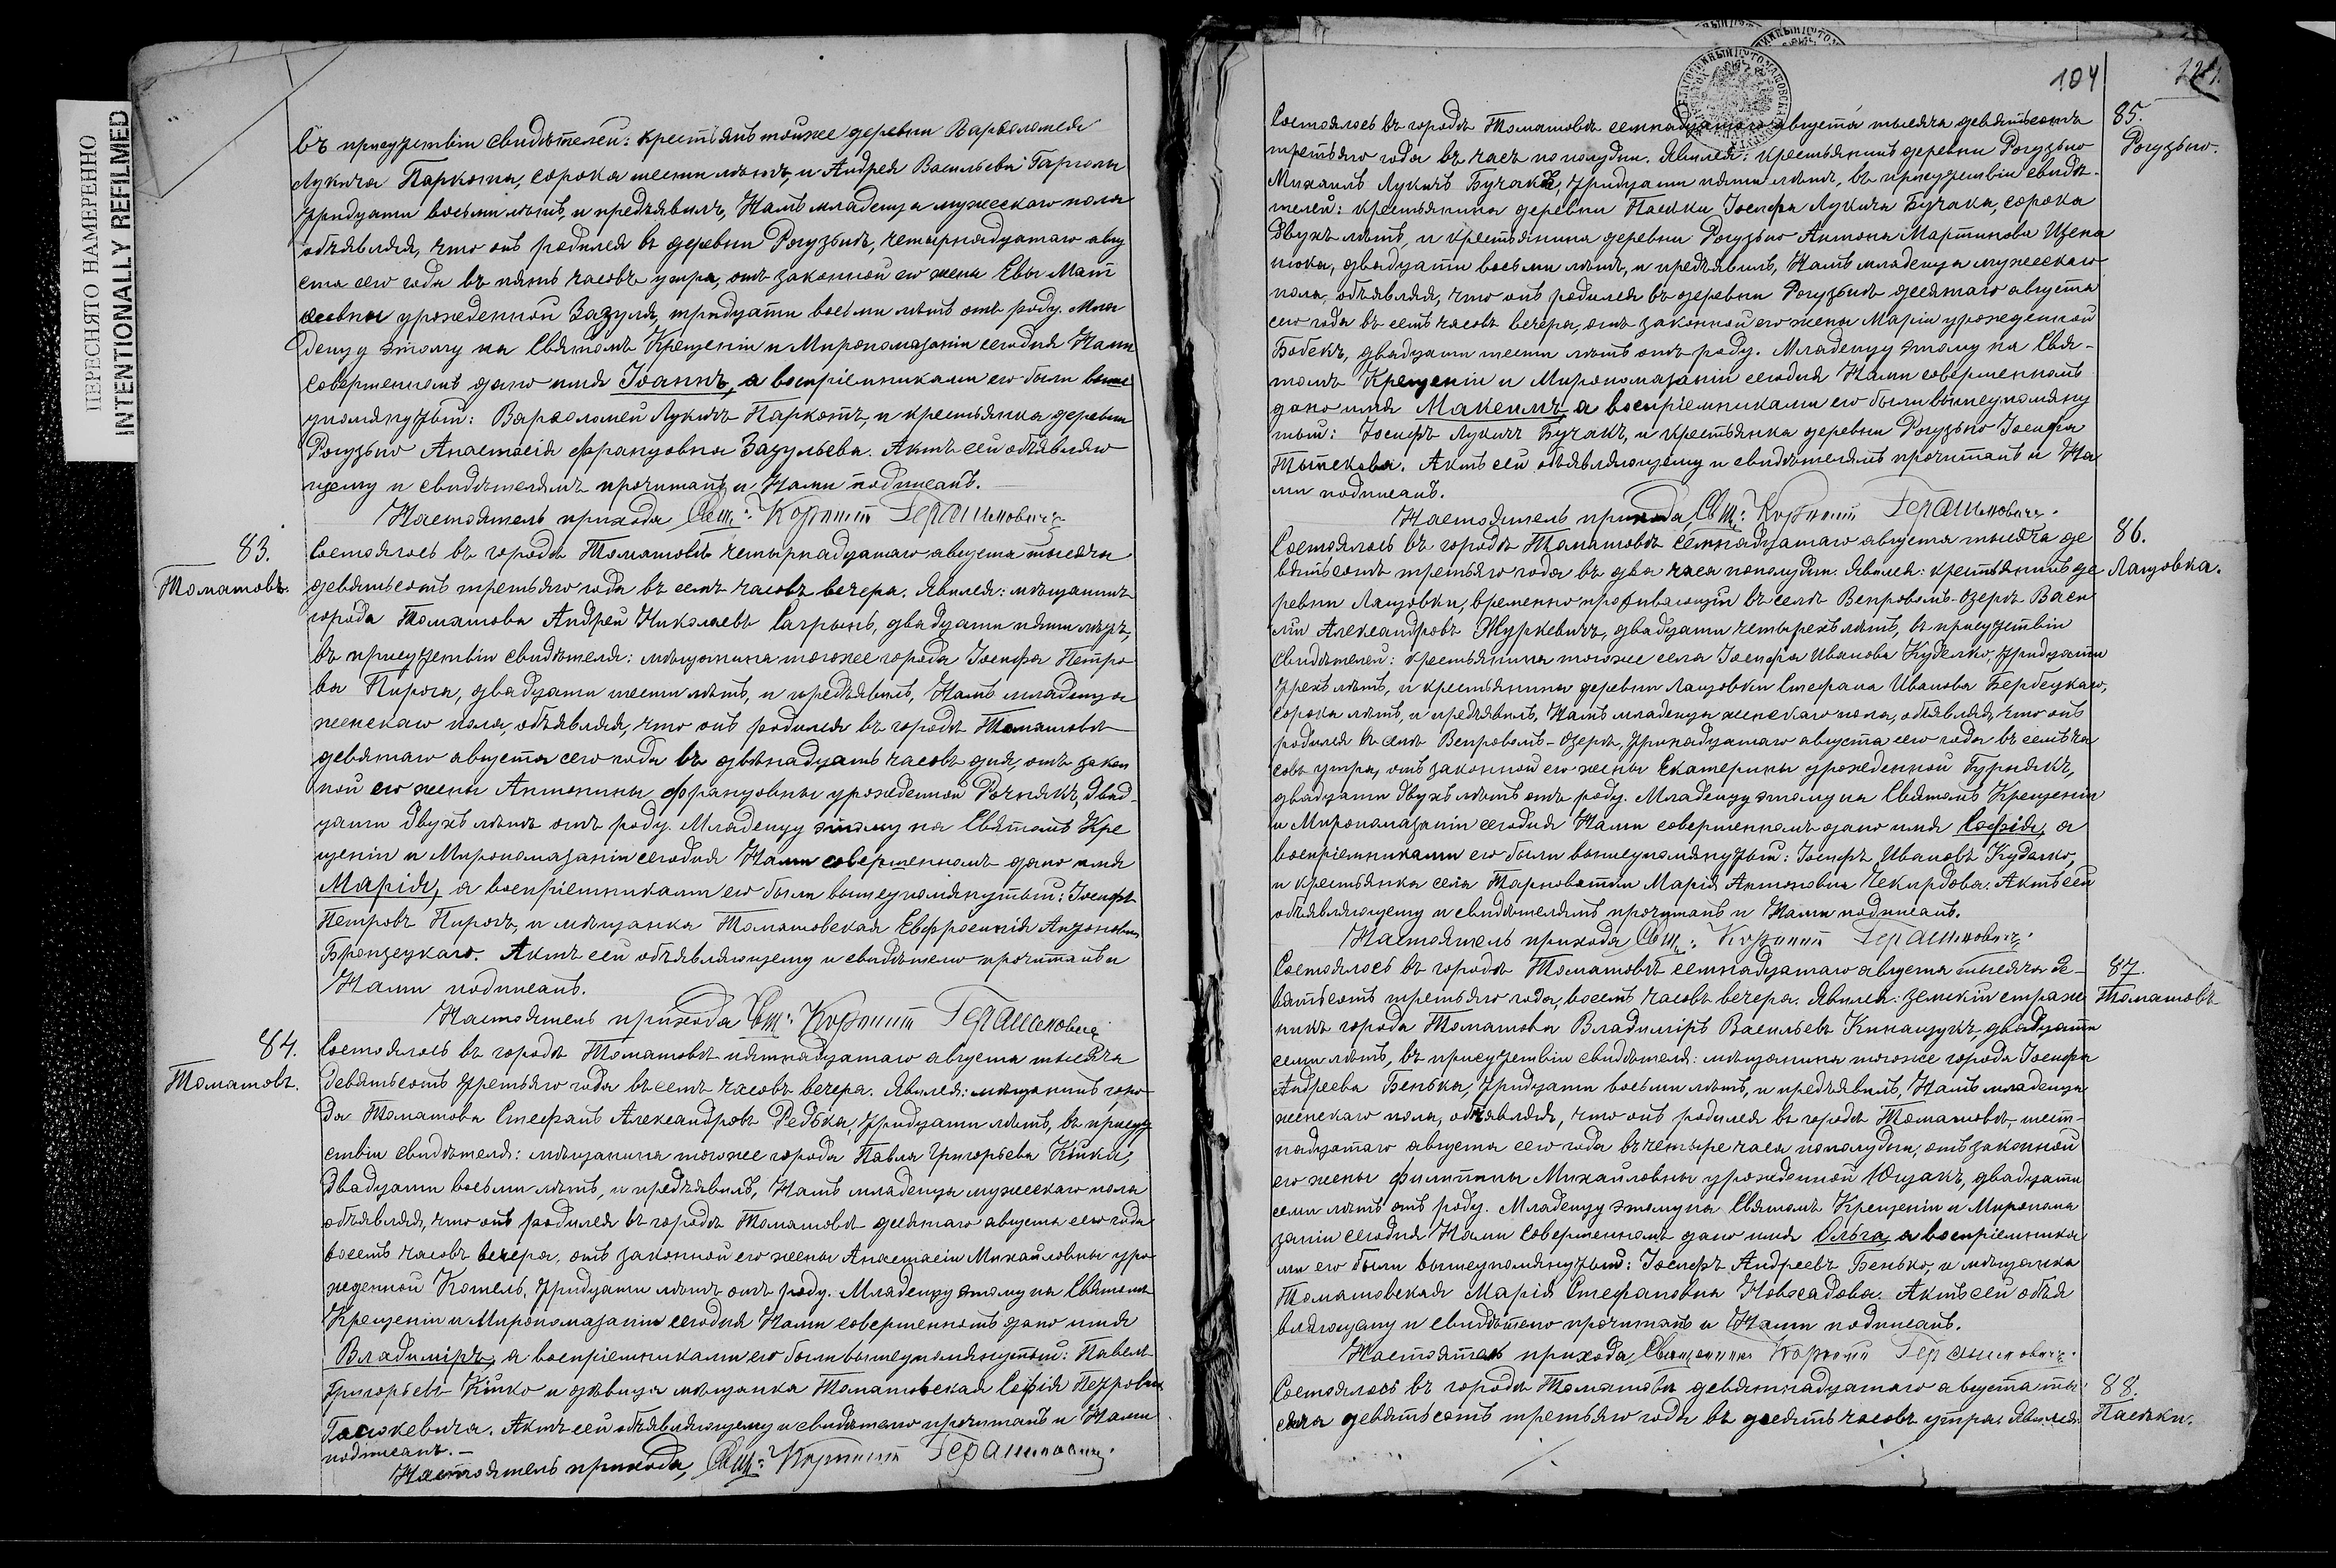 ПЕРЕСНЯТО НАМЕРЕННО
INTENTIONALLY REFILMED
въ присутствіи свидѣтелей: крестьянъ тойже деревни Варѳоломея
Лукича Паркота, сорока шести лѣтъ, и Андрея Васильева
тридцати восьми лѣтъ, и предъявилъ, Намъ младенца мужескаго пола
объявляя, что онъ родился въ деревни Рогузьнѣ, четырнадцатаго авгу
ста сего года въ пять часовъ утра, отъ законной его жены Евы Мат
ѳеевны урожденной Зазуля, тридцати восьми лѣтъ отъ роду. Мла
денцу этому на Святомъ Крещеніи и Миропомазаніи сегодня Нами
совершенномъ дано имя Іоаннъ, а воспріемниками его были выше
упомянутый: Варѳоломей Лукичъ Паркотъ, и крестьянка деревни
Рогузьно Анастасія Францовна Зазульева. Актъ сей объявляю
щему и свидѣтелямъ прочитанъ и Нами подписанъ.
Настоятель прихода Свщ:
83.
Томашовъ.
Состоялось въ городѣ Томашовѣ четырнадцатаго августа тысяча
девятьсотъ третьяго года въ семь часовъ вечера. Явился: мѣщанинъ
города Томашова Андрей Николаевъ Сагрынь, двадцати пяти лѣтъ,
въ присутствіи свидѣтеля: мѣщанина тогоже города Іосифа Петро
ва Пирога, двадцати шести лѣтъ, и предъявилъ, Намъ младенца
женскаго пола, объявляя, что онъ родился въ городѣ Томашовѣ
девятаго августа сего года въ двѣнадцать часовъ дня, отъ закон
ной его жены Антонины Францовны урожденной Рочнякъ, двад-
цати двухъ лѣтъ отъ роду. Младенцу этому на Святомъ Кре
щеніи и Миропомазаніи сегодня Нами совершенномъ дано имя
Марія, а воспріемниками его были вышеупомянутый: Іосифъ
Петровъ Пирогъ, и мѣщанка Томашовская Евфросинія Антоновна
Актъ сей объявляющему и свидѣтелю прочитанъ и
Нами подписанъ.
Настоятель прихода Свщ:
84.
Томашовъ.
Состоялось въ городѣ Томашовѣ пятнадцатаго августа тысяча
девятьсотъ третьяго года въ семь часовъ вечера. Явился: мѣщанинъ горо-
да Томашова Стефанъ Александровъ Редька, тридцати лѣтъ, въ присут
ствіи свидѣтеля: мѣщанина тогоже города Павла Григорьева Кійка,
двадцати восьми лѣтъ, и предъявилъ, Намъ младенца мужескаго пола
объявляя, что онъ родился въ городѣ Томашовѣ десятаго августа сего года
восемь часовъ вечера, отъ законной его жены Анастасіи Михайловны уро
жденной Котель, тридцати лѣтъ отъ роду. Младенцу этому на Святомъ
Крещеніи и Миропомазаніи сегодня Нами совершенномъ дано имя
Владиміръ, а воспріемниками его были вышеупомянутый: Павелъ
Григорьевъ Кійко и дѣвица мѣщанка Томашовская Софія Петровна
Актъ сей объявляющему и свидѣтелю прочитанъ и Нами
подписанъ.
Настоятель прихода, Свщ:
104
85.
Рогузьно.
Состоялось въ городѣ Томашовѣ семнадцатаго августа тысяча девятьсотъ
третьяго года въ часъ пополудни. Явился: крестьянинъ деревни Рогузьно
Михаилъ Лукичъ Бучакъ, тридцати пяти лѣтъ, въ присутствіи свидѣ-
телей: крестьянина деревни Пасѣки Іосифа Лукича Бучака, сорока
двухъ лѣтъ, и крестьянина деревни Рогузьно Антона Мартинова Щепа
нюка, двадцати восьми лѣтъ, и предъявилъ, Намъ младенца мужескаго
пола, объявляя, что онъ родился въ деревни Рогузьнѣ десятаго августа
сего года въ семь часовъ вечера, отъ законной его жены Маріи урожденной
Бобекъ, двадцати шести лѣтъ отъ роду. Младенцу этому на Свя-
томъ Крещеніи и Миропомазаніи сегодня Нами совершенномъ
дано имя Максимъ, а воспріемниками его были вышеупомяну
тый: Іосифъ Лукичъ Бучакъ, и крестьянка деревни Рогузьно Іосифа
Актъ сей объявляющему и свидѣтелямъ прочитанъ и На
ми подписанъ.
Настоятель прихода, Свщ:
86.
Лащовка.
Состоялось въ городѣ Томашовѣ семнадцатаго августа тысяча де
вятьсотъ третьяго года въ два часа пополудни. Явился: крестьянинъ де
ревни Лащовки, временно проживающій въ селѣ Вепровомъ-Озерѣ Васи
лій Александровъ Журкевичъ, двадцати четырехъ лѣтъ, въ присутствіи
свидѣтелей: крестьянина тогоже села Іосифа Иванова Куделко, тридцати
трехъ лѣтъ, и крестьянина деревни Лащовки Стефана Иванова Бербецкаго,
сорока лѣтъ, и предъявилъ, Намъ младенца женскаго пола, объявляя, что онъ
родился въ селѣ Вепровомъ-Озерѣ, тринадцатаго августа сего года въ семь ча
совъ утра, отъ законной его жены Екатерины урожденной Гурнякъ,
двадцати двухъ лѣтъ отъ роду. Младенцу этому на Святомъ Крещеніи
и Миропомазаніи сегодня Нами совершенномъ дано имя Софія, а
воспріемниками его были вышеупомянутый: Іосифъ Ивановъ Куделко,
и крестьянка села Тарноватки Марія Антоновна Чекирдова. Актъ сей
объявляющему и свидѣтелямъ прочитанъ и Нами подписанъ.
Настоятель прихода Свщ:
87.
Томашовъ
Состоялось въ городѣ Томашовѣ семнадцатаго августа тысяча де-
вятьсотъ третьяго года, восемь часовъ вечера. Явился: земскій страж
никъ города Томашова Владиміръ Васильевъ Кинащукъ, двадцати
семи лѣтъ, въ присутствіи свидѣтеля: мѣщанина тогоже города Іосифа
Андреева Бенька, тридцати восьми лѣтъ, и предъявилъ, Намъ младенца
женскаго пола, объявляя, что онъ родился въ городѣ Томашовѣ, шест-
надцатаго августа сего года въ четыре часа пополудни, отъ законной
его жены Филиппины Михайловны урожденной Ющакъ, двадцати
семи лѣтъ отъ роду. Младенцу этому на Святомъ Крещеніи и Миропома
заніи сегодня Нами совершенномъ дано имя Ольга, а воспріемника
ми его были вышеупомянутый: Іосифъ Андреевъ Бенько, и мѣщанка
Томашовская Марія Стефановна Новосадова. Актъ сей объя
вляющему и свидѣтелю прочитанъ и Нами подписанъ.
Настоятель прихода, Священникъ
88.
Пасѣки.
Состоялось въ городѣ Томашовѣ девятнадцатаго августа ты
сяча девятьсотъ третьяго года въ десять часовъ утра. Явился: